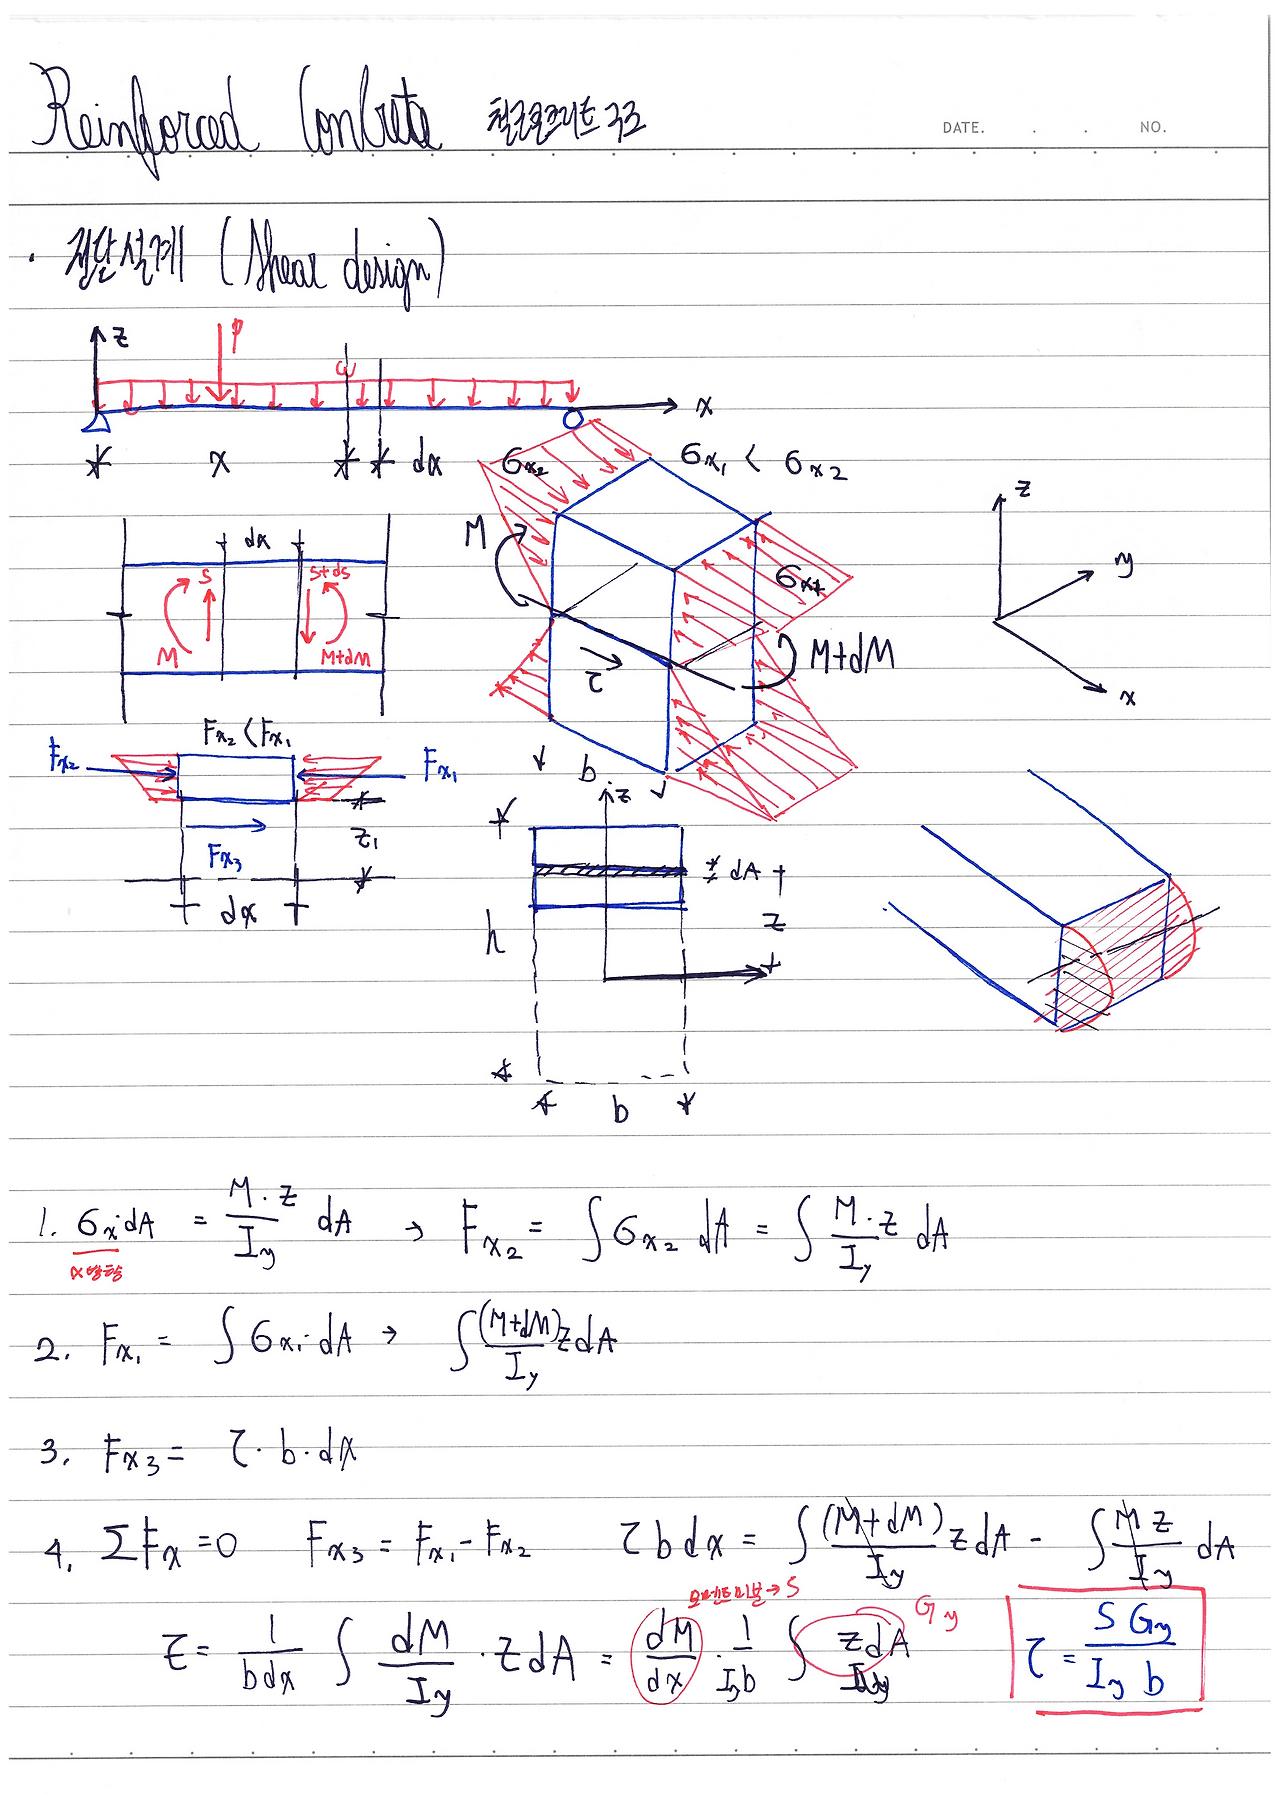 Reinforced Concrete 철근콘크리트 구조
DATE. . . NO.
· 전단설계 (Shear design)
z P ω x
x dx
σx₂ σx₁ < σx₂
M
dx
S S+dS
M M+dM
σx₁
τ
M+dM
z y x
Fx₂ < Fx₁
Fx₂ Fx₁
z₁
Fx₃
dx
b
z
dA
z
h
b
1. σx·dA = M·z/Iy dA → Fx₂ = ∫σx₂ dA = ∫ M·z/Iy dA
x방향
2. Fx₁ = ∫σx₁·dA → ∫(M+dM)/Iy z dA
3. Fx₃ = τ·b·dx
4. ΣFx = 0 Fx₃ = Fx₁ - Fx₂ τ b dx = ∫(M+dM)/Iy z dA - ∫ M z/Iy dA
모멘트 미분 → S Gy
τ = 1/bdx ∫ dM/Iy · z dA = dM/dx · 1/Iyb ∫ z dA
τ = S Gy/Iy b